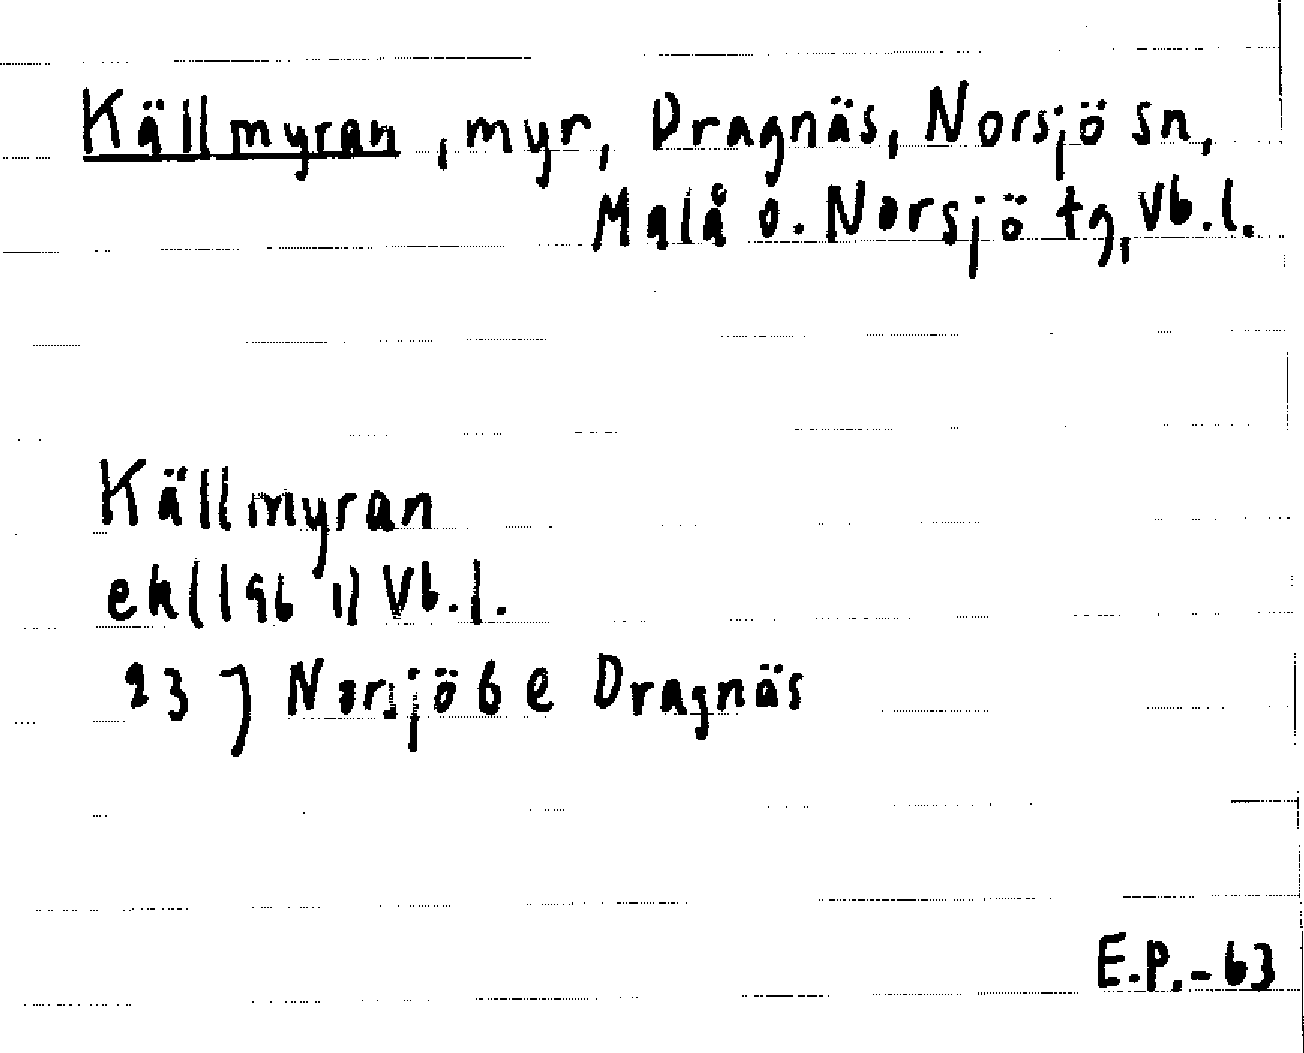 Källmyran, myr, Dragnäs, Norsjö sn,
Malå o. Norsjö tg, Vb. l.
Källmyran
ek (1961) Vb. l.
23 J Norsjö 6 e Dragnäs
E.P.-63